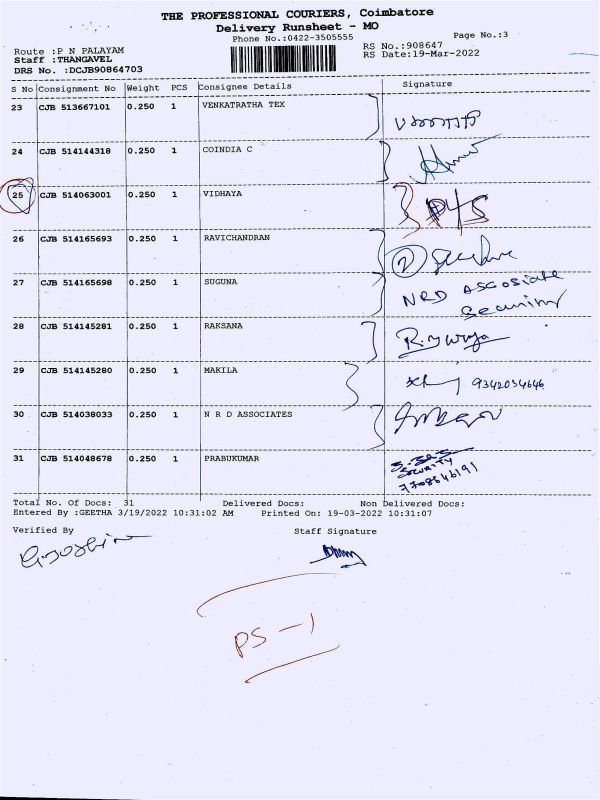 THE PROFESSIONAL COURIERS, Coimbatore
Delivery Runsheet - MO
Phone No.:0422-3505555
Page No.:3
Route :P N PALAYAM
RS No.:908647
Staff :THANGAVEL
RS Date:19-Mar-2022
DRS No. :DCJB90864703
S No Consignment No Weight PCS Consignee Details Signature
23 CJB 513667101 0.250 1 VENKATRATHA TEX
24 CJB 514144318 0.250 1 COINDIA C
25 CJB 514063001 0.250 1 VIDHAYA
26 CJB 514165693 0.250 1 RAVICHANDRAN
27 CJB 514165698 0.250 1 SUGUNA NRD Associate
28 CJB 514145281 0.250 1 RAKSANA
29 CJB 514145280 0.250 1 MAKILA 9342054646
30 CJB 514038033 0.250 1 N R D ASSOCIATES
31 CJB 514048678 0.250 1 PRABUKUMAR
SECURITY
Total No. Of Docs: 31 Delivered Docs: Non Delivered Docs:
Entered By :GEETHA 3/19/2022 10:31:02 AM Printed On: 19-03-2022 10:31:07
Verified By Staff Signature
PS-1